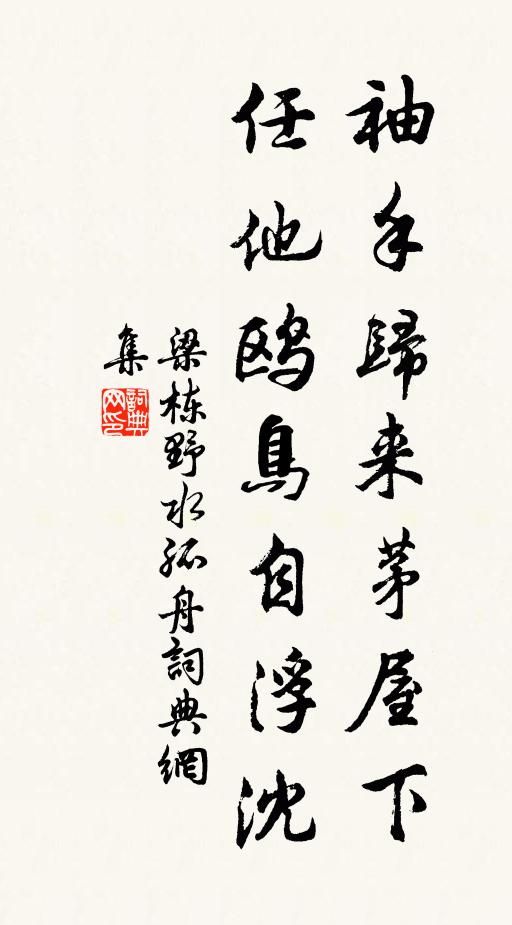 袖手歸来茅屋下
任他鸥鳥自浮沈
梁栋野水孤舟詞典網
集
詞典网印